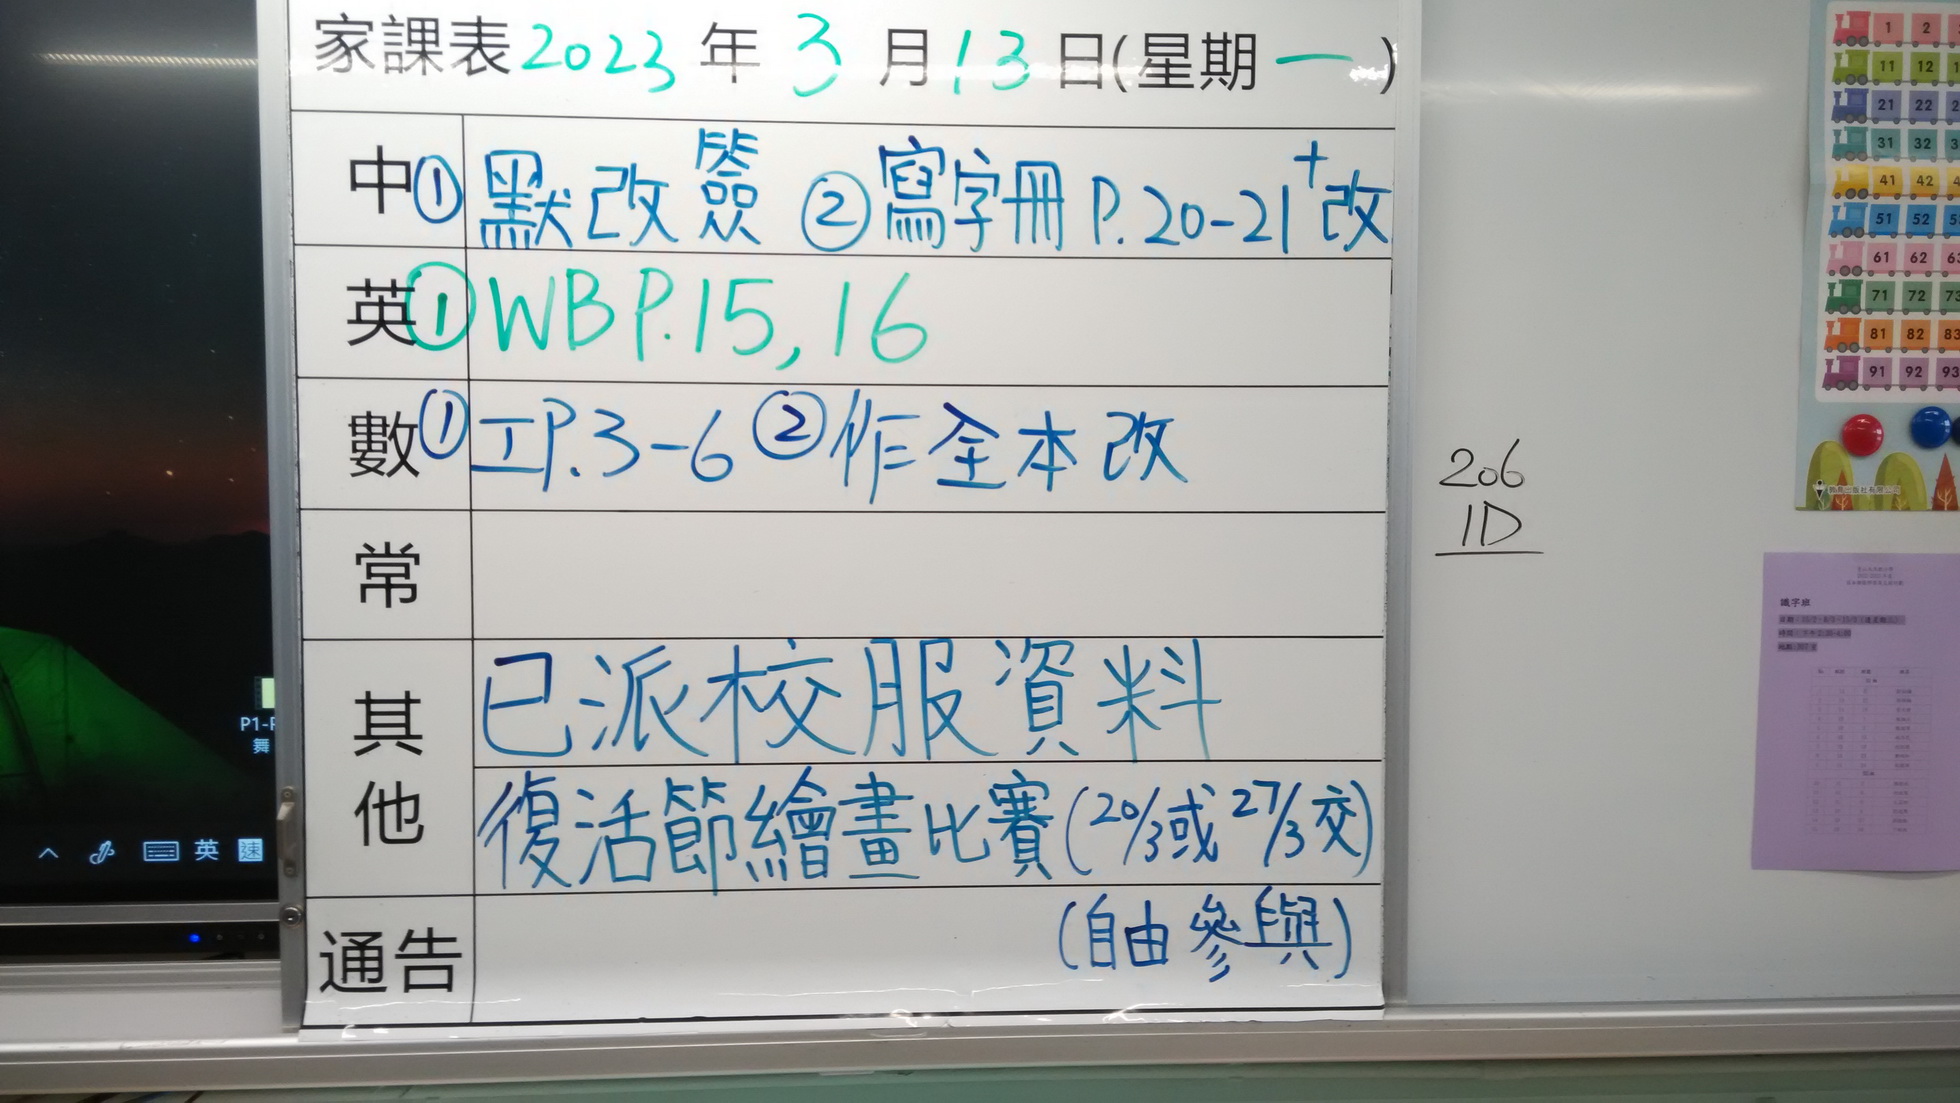 家課表2023年3月13日(星期一)
中①默改簽 ②寫字冊P.20-21+改
英①WB P.15,16
數①工P.3-6 ②作全本改
常
其他
已派校服資料
復活節繪畫比賽(20/3或27/3交)
(自由參與)
通告
206
1D
1 2
11 12 1
21 22 2
31 32 3
41 42 4
51 52 5
61 62 63
71 72 73
81 82 83
91 92 93
識字班
P1-
舞
英 速